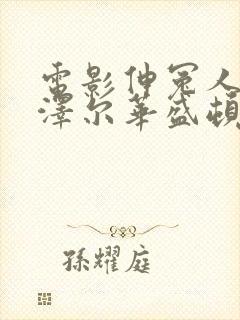 電影伸冤人
澤尔華盛頓
孫耀庭